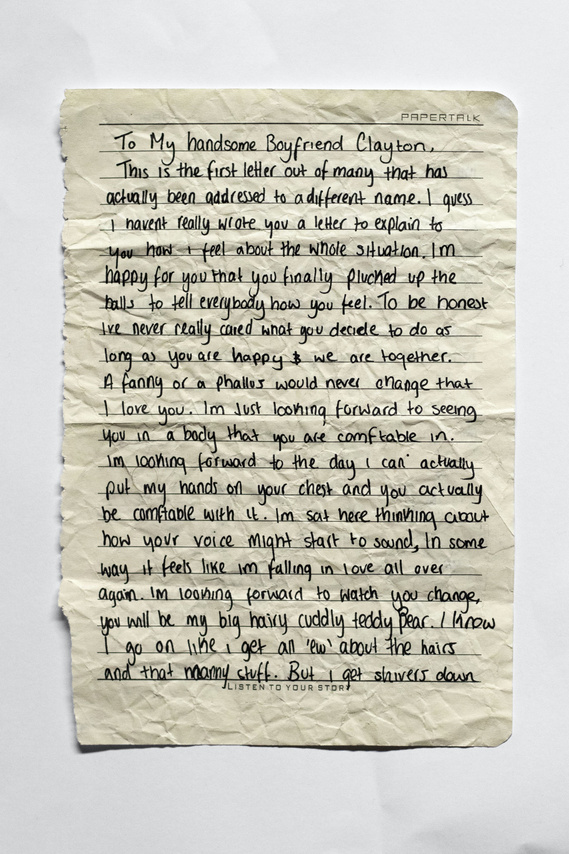 PAPERTALK
To My handsome Boyfriend Clayton,
This is the first letter out of many that has
actually been addressed to a different name. I guess
I havent really wrote you a letter to explain to
you how i feel about the whole situation. Im
happy for you that you finally plucked up the
balls to tell everybody how you feel. To be honest
Ive never really cared what you decide to do as
long as you are happy & we are together.
A fanny or a phallus would never change that
I love you. Im Just looking forward to seeing
you in a body that you are comftable in.
Im looking forward to the day i can actually
put my hands on your chest and you actually
be comftable with it. Im sat here thinking about
how your voice might start to sound, In some
way it feels like im falling in love all over
again. Im looking forward to watch you change,
you will be my big hairy cuddly teddy bear. I know
I go on like i get all 'ew' about the hairs
and that manny stuff. But i get shivers down
LISTEN TO YOUR STORY